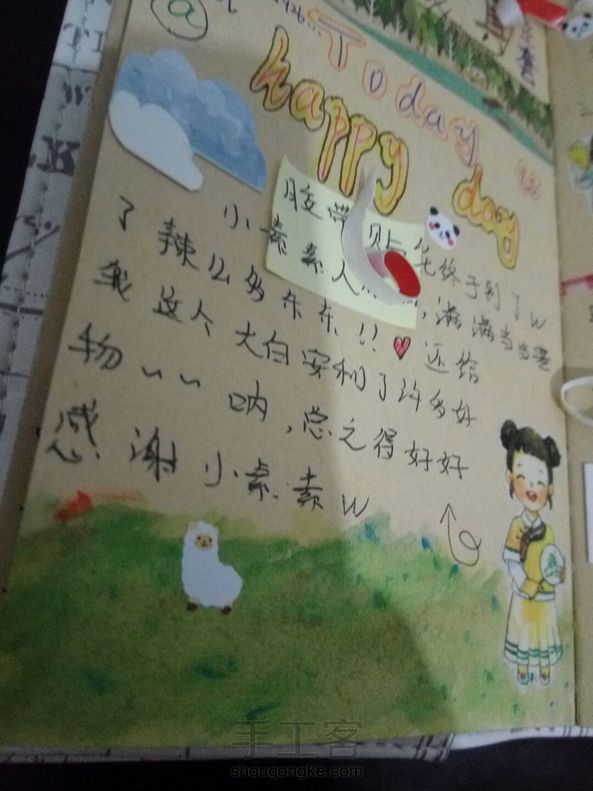 a
Today
happy day
胶带贴纸终于到了w
小素素人,满满当当塞
了辣么多东东!!♥还给
我这个大白安利了许多好
物~~呐,总之得好好
感谢小素素w
手工客
shougongke.com